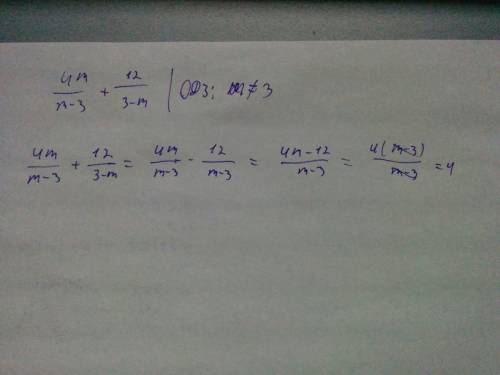 4m/m-3 + 12/3-m | ОДЗ: m≠3
4m/m-3 + 12/3-m = 4m/m-3 - 12/m-3 = 4m-12/m-3 = 4(m-3)/m-3 = 4